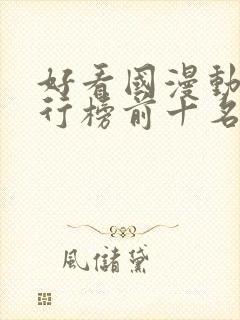 好看國漫動
行榜前十名
風儲黛